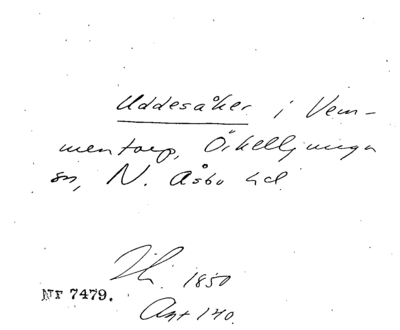 Uddesåker i Vem-
mentorp, Örkelljunga
sn, N. Åsbo hd
1850
Nr 7479.
Akt 140.